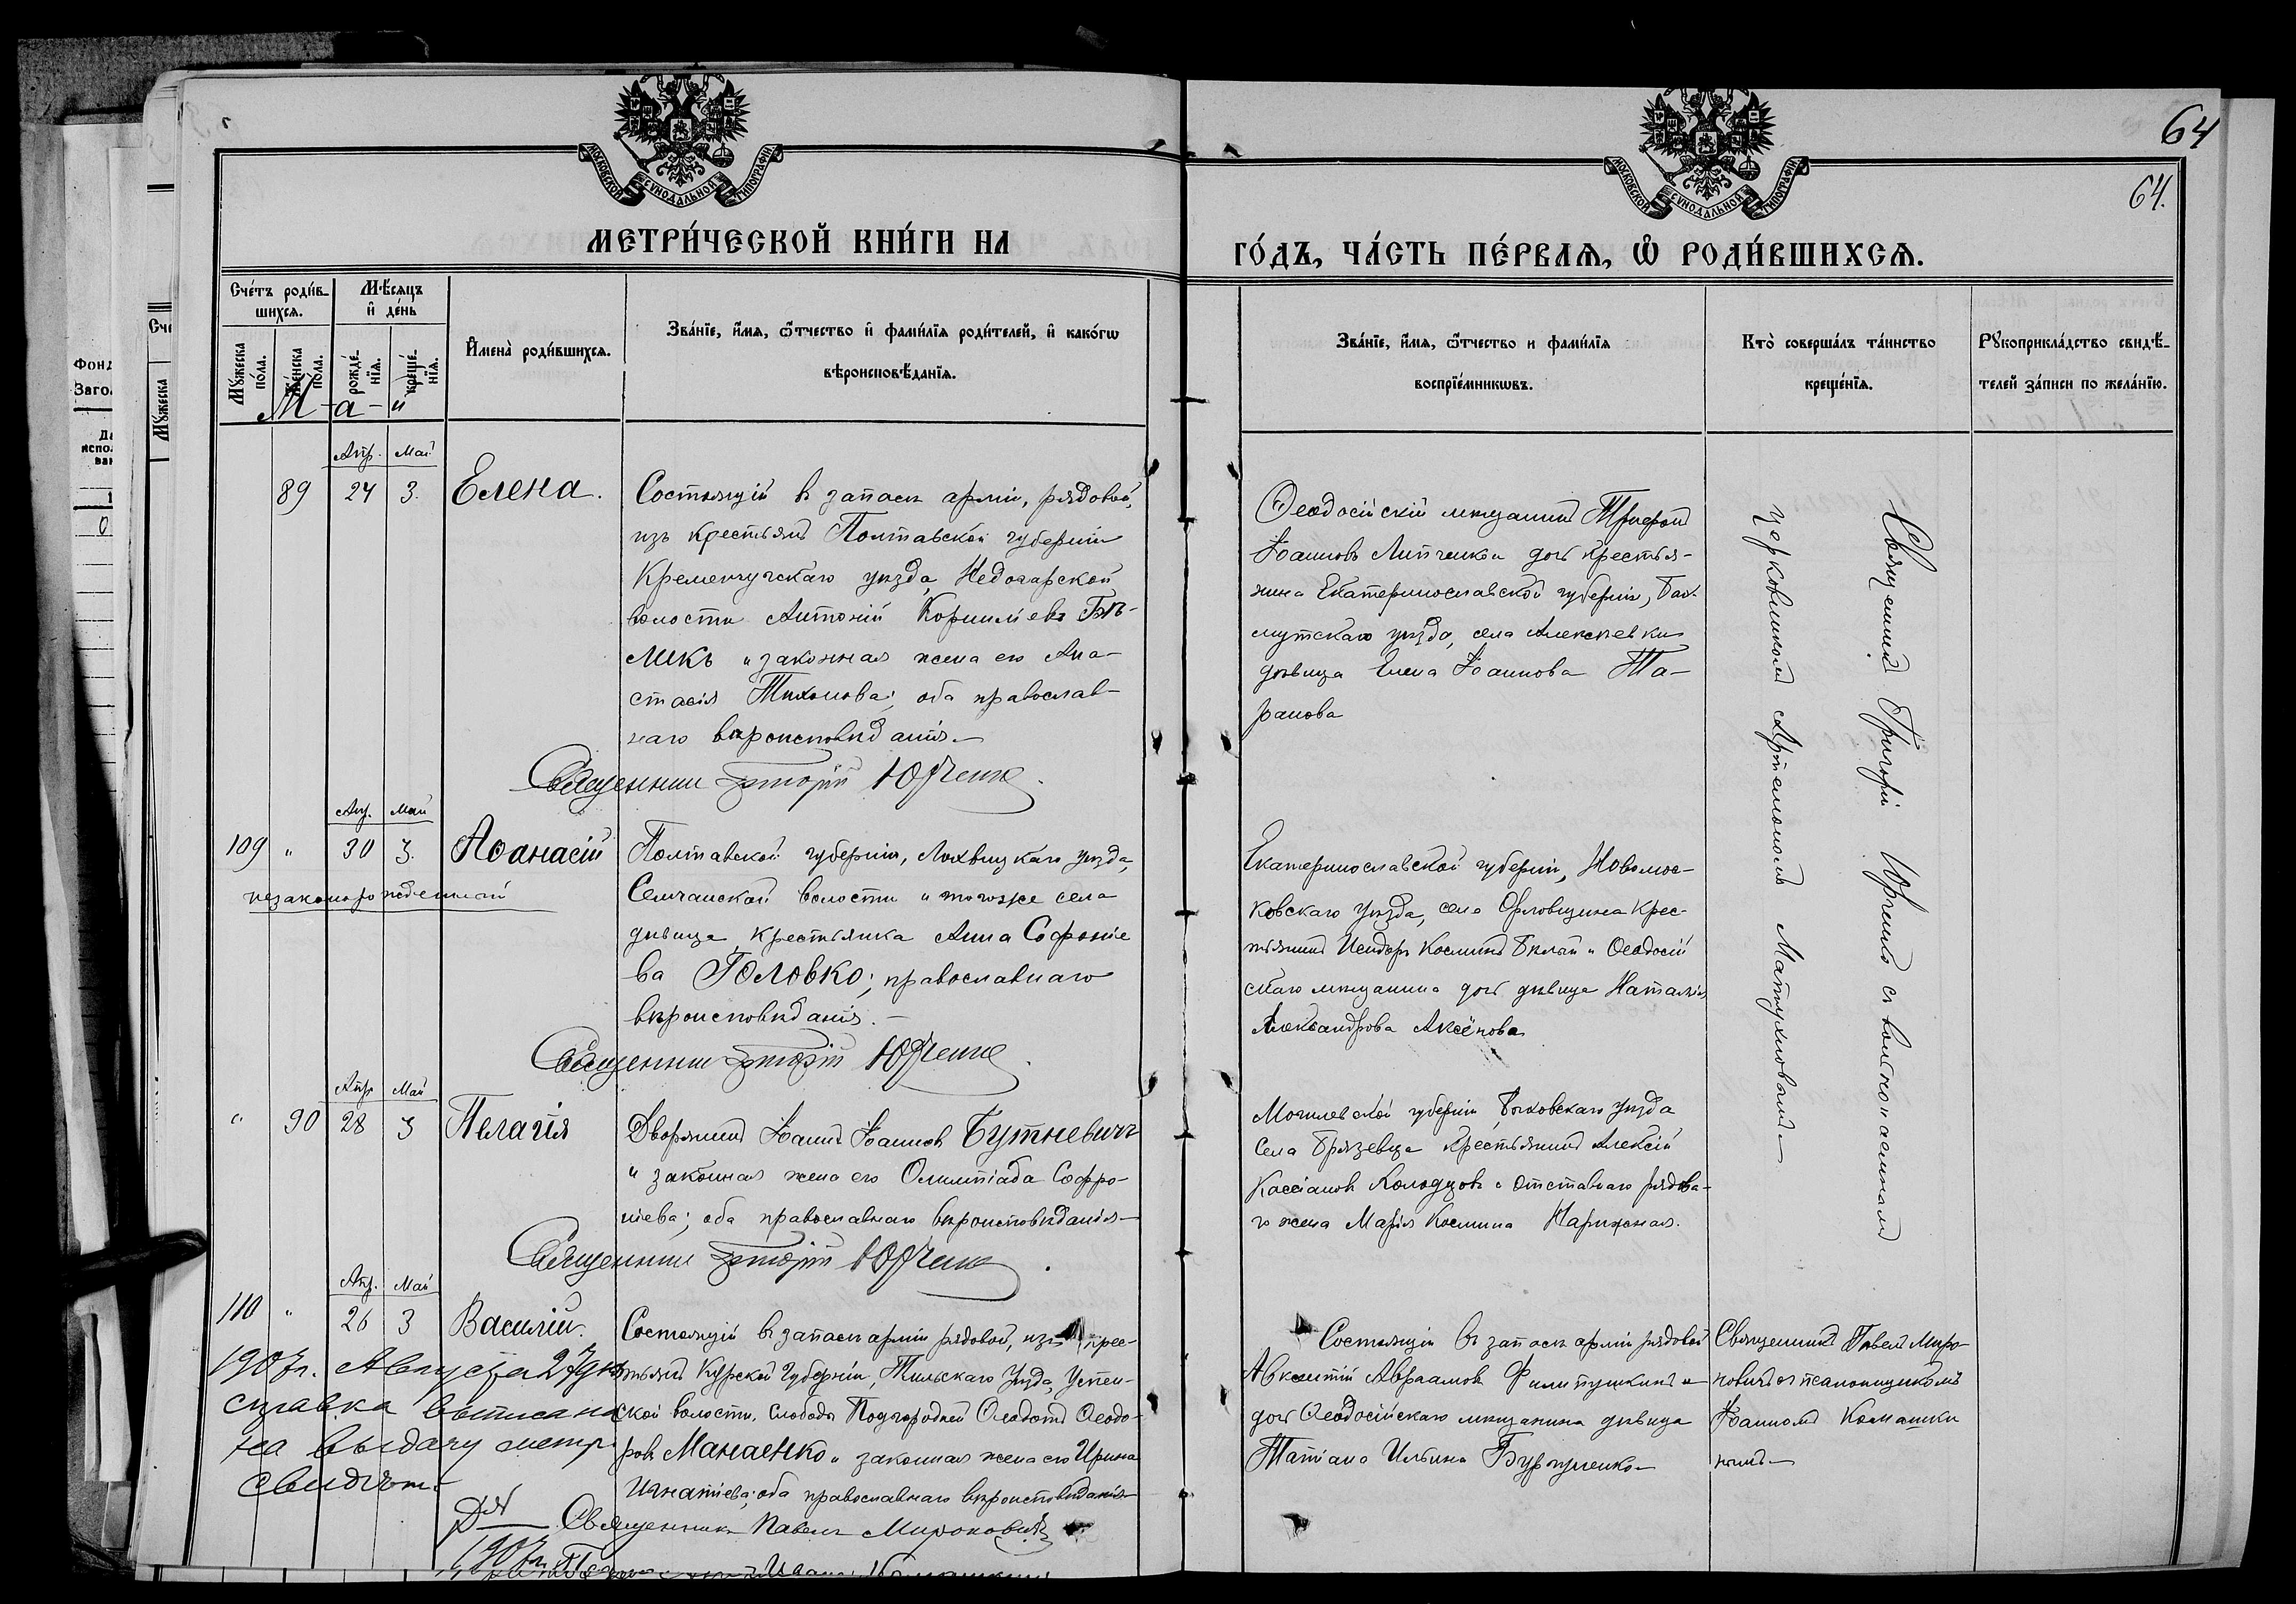 64
64.
МОСКОВСКОЙ СѴНОДАЛЬНОЙ ТИПОГРАФІИ
МОСКОВСКОЙ СѴНОДАЛЬНОЙ ТИПОГРАФІИ
МЕТРИ́ЧЕСКОЙ КНИ́ГИ НА
ГО́ДЪ, ЧА́СТЬ ПЕ́РВАѦ, Ѡ҆ РОДИ́ВШИХСѦ.
Сче́тъ роди́в-
шихсѧ.
Мѣ́сѧцъ
и҆ де́нь
Мꙋ́жеска
по́ла.
Же́нска
по́ла.
рожде́-
нїѧ.
креще́-
нїѧ.
И҆мена̀ роди́вшихсѧ.
Зва́нїе, и҆́мѧ, ѻ҆́тчество и҆ фами́лїѧ роди́телей, и҆ како́гѡ
вѣроисповѣ́данїѧ.
Зва́нїе, и҆́мѧ, ѻ҆́тчество и фами́лїѧ
воспрїе́мникѡвъ.
Кто̀ соверша́лъ та́инство
креще́нїѧ.
Рꙋкоприкла́дство свидѣ́-
телей за́писи по жела́нїю.
М-а-й
Апр. Май
89 24 3. Елена.
Состоящій въ запасѣ арміи, рядовой,
изъ крестьянъ Полтавской губерніи
Кременчугскаго уѣзда, Недогарской
волости Антоній Корниліевъ Бѣ-
ликъ и законная жена его Ана-
стасія Тихонова; оба православ-
наго вѣроисповѣданія.—
Священникъ Григорій Юрченко.
Ѳеодосійскій мѣщанинъ Трифонъ
Іоанновъ Липченко и дочь крестья-
нина Екатеринославской губерніи, Бах-
мутскаго уѣзда, села Алексѣевки
дѣвица Елена Іоаннова Та-
ранова
Священникъ Григорій Юрченко съ
церковникомъ Артемономъ Матюхновымъ—
Апр. Май
109 „ 30 3. Аѳанасій
незаконорожденный
Полтавской губерніи, Лохвицкаго уѣзда,
Сенчанской волости и того же села
дѣвица, крестьянка Анна Софроніе
ва Головко; православнаго
вѣроисповѣданія.—
Священникъ Григорій Юрченко.
Екатеринославской губерніи, Новомос-
ковскаго уѣзда, села Орловщина крес-
тьянинъ Исидоръ Косминъ Бѣлый и Ѳеодосій
скаго мѣщанина дочь дѣвица Наталія
Александрова Аксёнова
Апр. Май
„ 90 28 3 Пелагія
Дворянинъ Іоаннъ Іоанновъ Бутневичъ
и законная жена его Олимпіада Софро-
ніева; оба православнаго вѣроисповѣданія—
Священникъ Григорій Юрченко.
Могилевской губерніи, Быховскаго уѣзда
села Грязевца крестьянинъ Алексій
Кассіановъ Колодцовъ и отставнаго рядова-
го жена Марія Космина Нарижная.
Апр. Май
110 „ 26 3 Василій.
Состоящій въ запасѣ арміи рядовой, изъ крес-
тьянъ Курской губерніи, Тимскаго уѣзда, Успен-
ской волости, слободы Подгородней Ѳеодотъ Ѳеодо-
ровъ Манаенко и законная жена его Ирина
Игнатіева; оба православнаго вѣроисповѣданія—
Священникъ Павелъ Мироновичъ
Состоящій въ запасѣ арміи рядовой
Авксентій Авраамовъ Филипушкинъ и
дочь Ѳеодосійскаго мѣщанина дѣвица
Татіана Ильина Бурлученко—
Священникъ Павелъ Миро-
новичъ съ псаломщикомъ
Іоанномъ Комашки
нымъ—
1907г. Августа 27 дня
справка выписана
на выдачу метр.
свидѣт.
1907г.